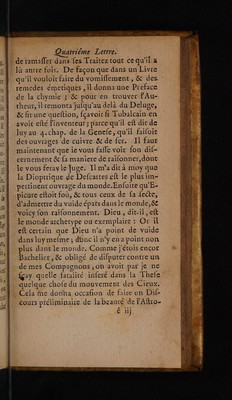 Quatriéme Lettre.
de ramasser dans ses Traitez tout ce qu'il a
lû autre fois. De façon que dans un Livre
qu'il vouloit faire du vomissement, & des
remedes émetiques, il donna une Preface
de la chymie ; & pour en trouver l'Au-
theur, il remonta jusqu'au delà du Deluge,
& fit une question, sçavoir si Tubalcain en
avoit esté l'inventeur ; parce qu'il est dit de
luy au 4. chap. de la Genese, qu'il faisoit
des ouvrages de cuivre & de fer. Il faut
maintenant que je vous fasse voir son dis-
cernement & sa maniere de raisonner, dont
je vous feray le Juge. Il m'a dit à moy que
la Dioptrique de Descartes est le plus im-
pertinent ouvrage du monde. Ensuite qu'E-
picure estoit fou, & tous ceux de sa secte,
d'admettre du vuide épars dans le monde, &
voicy son raisonnement. Dieu, dit-il, est
le monde archetype ou exemplaire : Or il
est certain que Dieu n'a point de vuide
dans luy mesme ; donc il n'y en a point non
plus dans le monde. Comme j'étois encor
Bachelier, & obligé de disputer contre un
de mes Compagnons, on avoit par je ne
sçay quelle fatalité inseré dans la These
quelque chose du mouvement des Cieux.
Cela me donna occasion de faire un Dis-
cours préliminaire de la beauté de l'Astro-
é iij